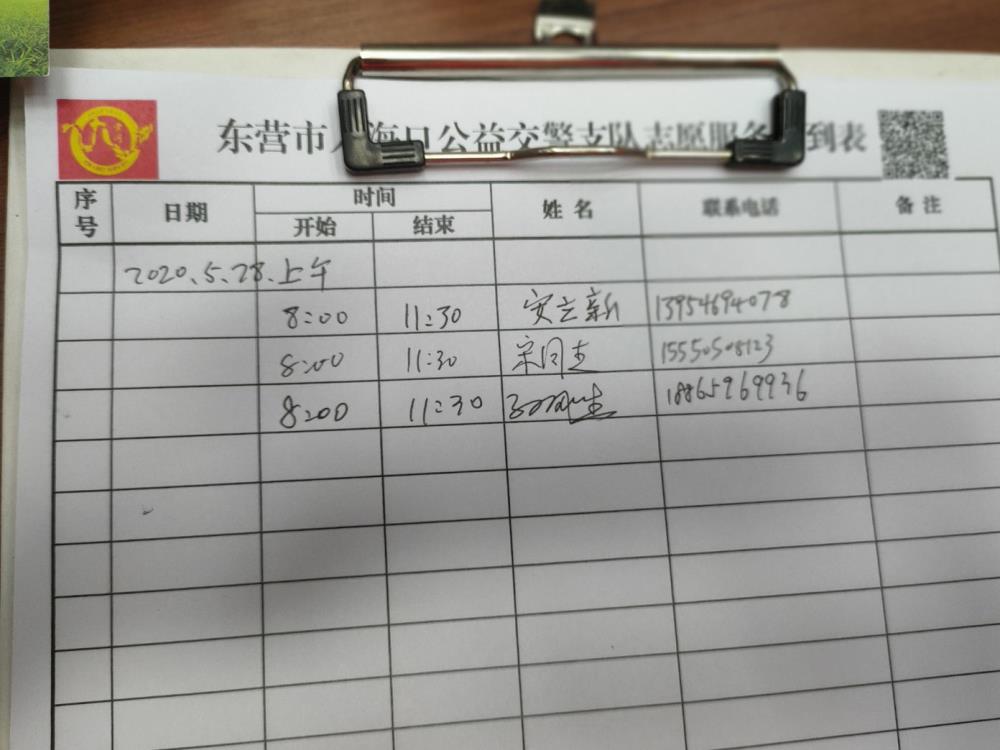 东营市 海口公益交警支队志愿服务 到表
序号 日期 时间 姓名 联系电话 备注
开始 结束
2020、5、28、上午
8:00 11:30 安立新 13954694078
8:00 11:30 宋同志 15550508123
8:00 11:30 18865969936